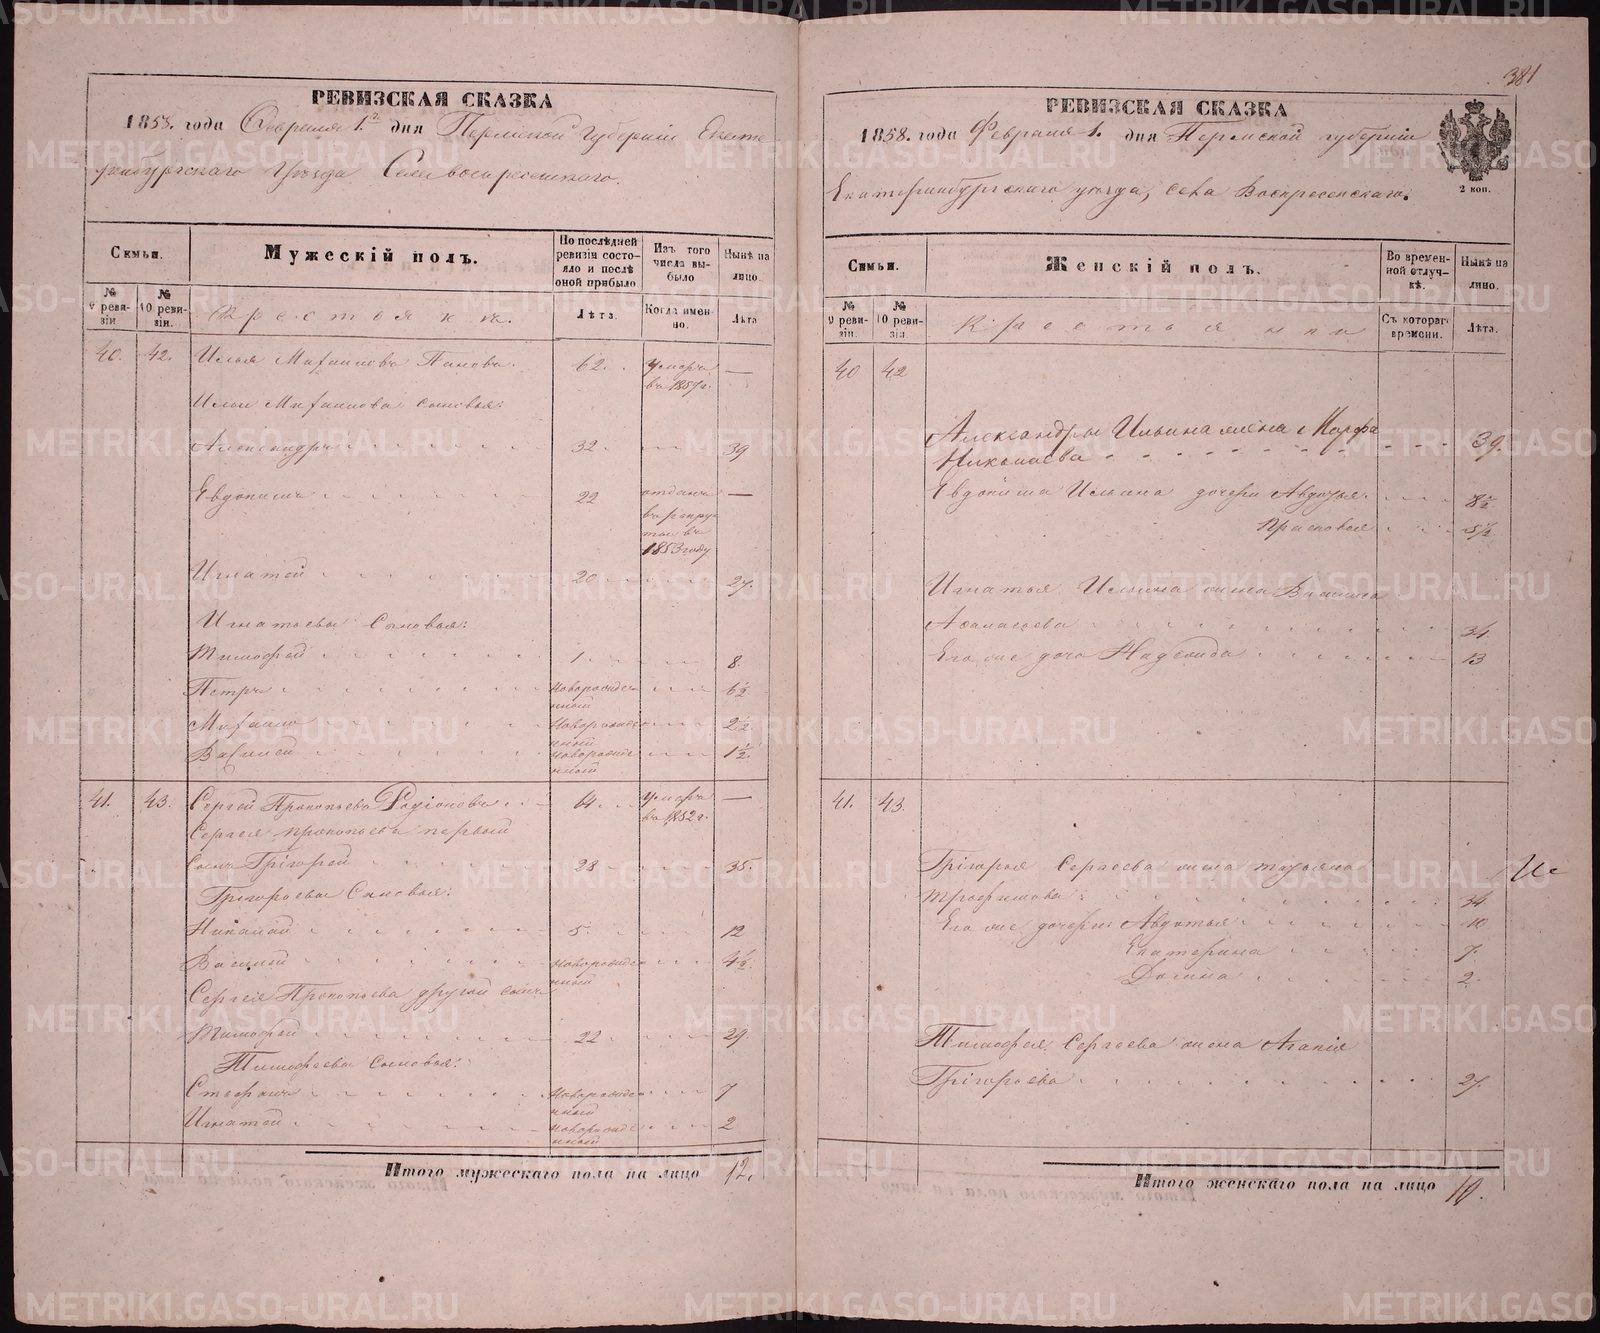 РЕВИЗСКАЯ СКАЗКА
1858. года Февраля 1. дня Пермской Губерніи Екате
ринбургскаго Уѣзда Села Воскресенскаго.
Семьи.
Мужескій полъ.
По послѣдней ревизіи состояло и послѣ оной прибыло
Изъ того числа выбыло
Нынѣ на лицо.
№ 9 ревизіи
№ 10 ревизіи.
Крестьянъ.
Лѣта.
Когда именно.
Лѣта
40. 42. Илья Михаиловъ Пановъ. 62. умеръ —
въ 1857 г.
Ильи Михаилова сыновья:
Александръ 32. 39
Евдокимъ 22 отданъ —
въ рекру
ты въ
1853 году
Игнатей 20 27.
Игнатьевы Сыновья:
Тимофей 1. 8.
Петръ новорожден 6½
ный
Михаило новорожден 2½
ный
Василей новорожде 1½
нный
41. 43. Сергей Прокопьевъ Родіоновъ 64. умеръ —
въ 1852 г.
Сергея Прокопьева первый
сынъ Григорей 28 35.
Григорьевы Сыновья:
Николай 5. 12
Василей новорожден 4½
ный
Сергея Прокопьева другой сынъ
Тимофей 22. 29.
Тимофеевы сыновья:
Стефанъ новорожден 7
ный
Игнатей новорожде 2
нный
Итого мужескаго пола на лицо 12.
381
РЕВИЗСКАЯ СКАЗКА
1858. года Февраля 1. дня Пермской губерніи
Екатеринбургскаго уѣзда, села Воскресенскаго.
2 коп.
Семьи.
Женскій полъ.
Во временной отлучкѣ.
Нынѣ на лицо.
№ 9 ревизіи.
№ 10 ревизіи
Крестьянки
Съ котораго времени.
Лѣта.
40 42
Александры Ильина жена Марфа
Николаева 39.
Евдокима Ильина дочери Авдотья 8½
Прасковья 5½
Игнатья Ильина жена Васса
Афанасьева 31.
Его же дочь Надежда 13
41. 43
Григорья Сергеева жена Татьяна
Трофимова 34
Его же дочери: Авдотья 10
Екатерина 7.
Домна 2.
Тимофея Сергеева жена Агапія
Григорьева 27.
Итого женскаго пола на лицо 10.
METRIKI.GASO-URAL.RU